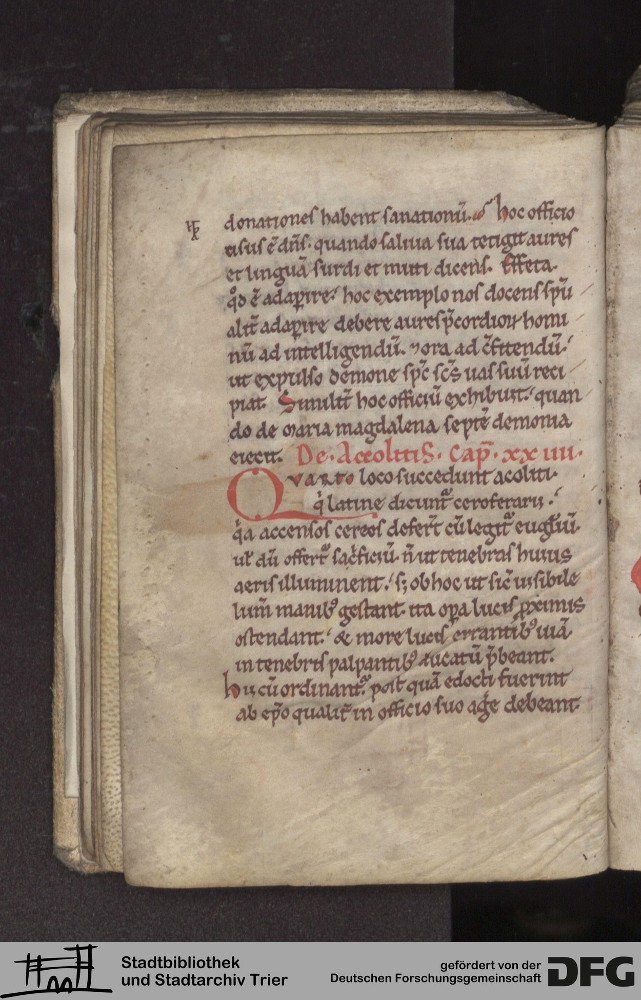 donationes habent sanationū. Hoc officio
usus ē dn̄s. quando saliua sua tetigit aures
et linguā surdi et muti dicens. Effeta.
qd̊ ē adaꝑire. hoc exemplo nos docens spū
alit̄ adaꝑire debere aures p̄cordioꝝ homi
nū ad intelligendū. ⁊ ora ad c̄fitendū.
ut expulso demone spc̄ scs̄ uas suū reci
piat. Simulit̄ hoc officiū exhibuit. quan
do de maria magdalena septē demonia
eiecit. De. Accolitis. Cap̄. xxiiii.
Quarto loco succedunt acoliti.
q̇ latine dicunt᷑ ceroferarii.
q̇a accensos cereos defert̄ cū legit᷑ euḡliū.
ul̄ dū offert᷑ sac̊ficiū. n̄ ut tenebras huius
aeris illuminent. s; ob hoc ut sic̄ uisibile
lum̄ manibꝰ gestant. ita oꝑa lucis ꝓximis
ostendant. & more lucis errantibꝰ uiā
in tenebris palpantibꝰ ducatū p̄beant.
hii cū ordinant᷑. post quā edocti fuerint
ab ep̄o qualit̄ in officio suo aḡe debeant
Stadtbibliothek
und Stadtarchiv Trier
gefördert von der
Deutschen Forschungsgemeinschaft
DFG